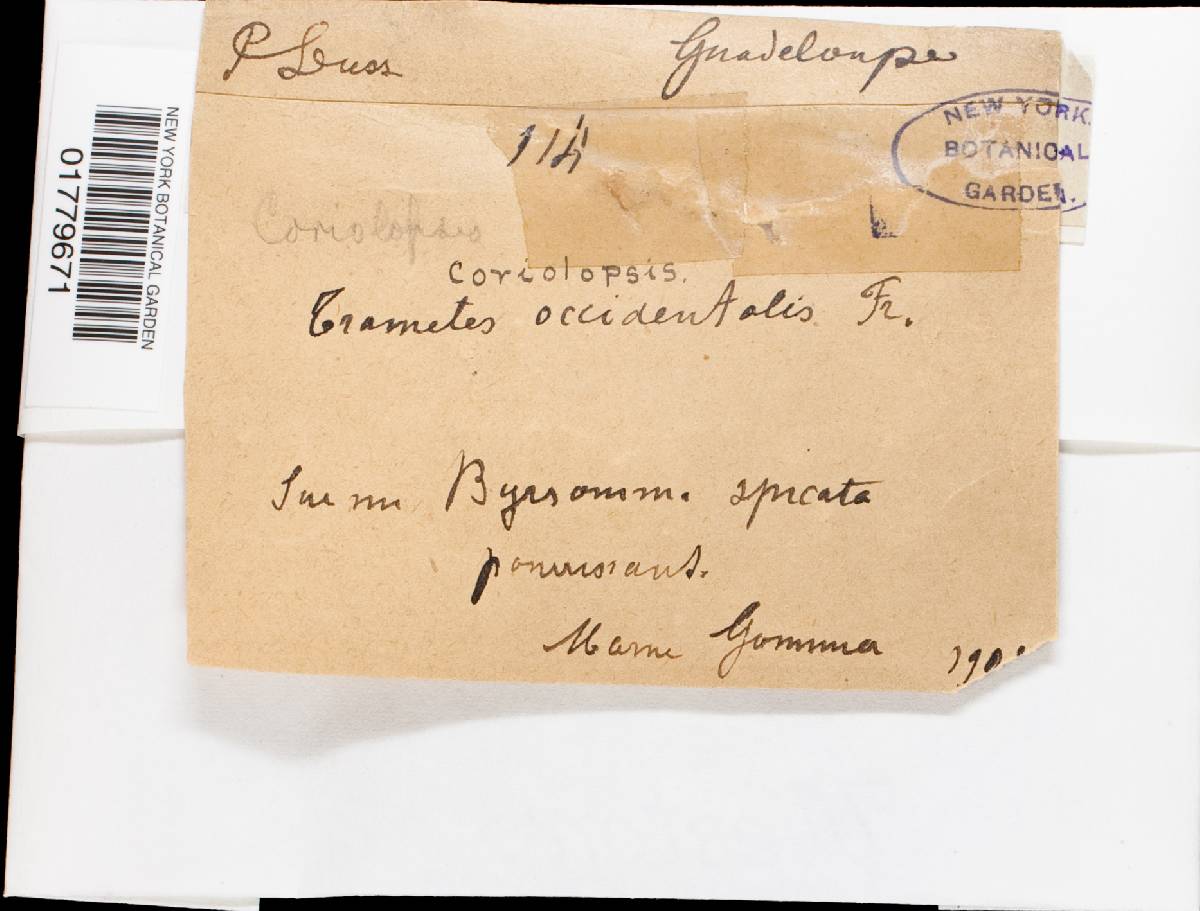 P Duss Guadeloupe
NEW YORK
BOTANICAL
GARDEN.
114
Coriolopsis
Coriolopsis.
Trametes occidentalis Fr.
Sur un Byrsonim. spicata
pourrissant.
Morne Gommier 190
NEW YORK BOTANICAL GARDEN
01779671